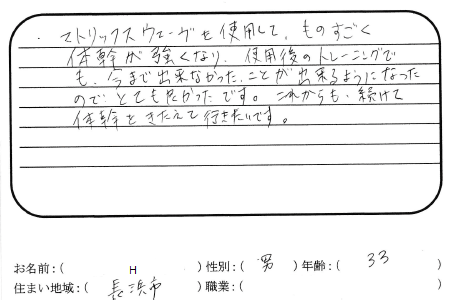 ・マトリックスウェーブを使用して、ものすごく
体幹が強くなり、使用後のトレーニングで
も、今まで出来なかった、ことが出来るようになった
ので、とても良かったです。これからも、続けて
体幹をきたえて行きたいです。
お名前:( H ) 性別:( 男 ) 年齢:( 33 )
住まい地域:( 長浜市 ) 職業:( )